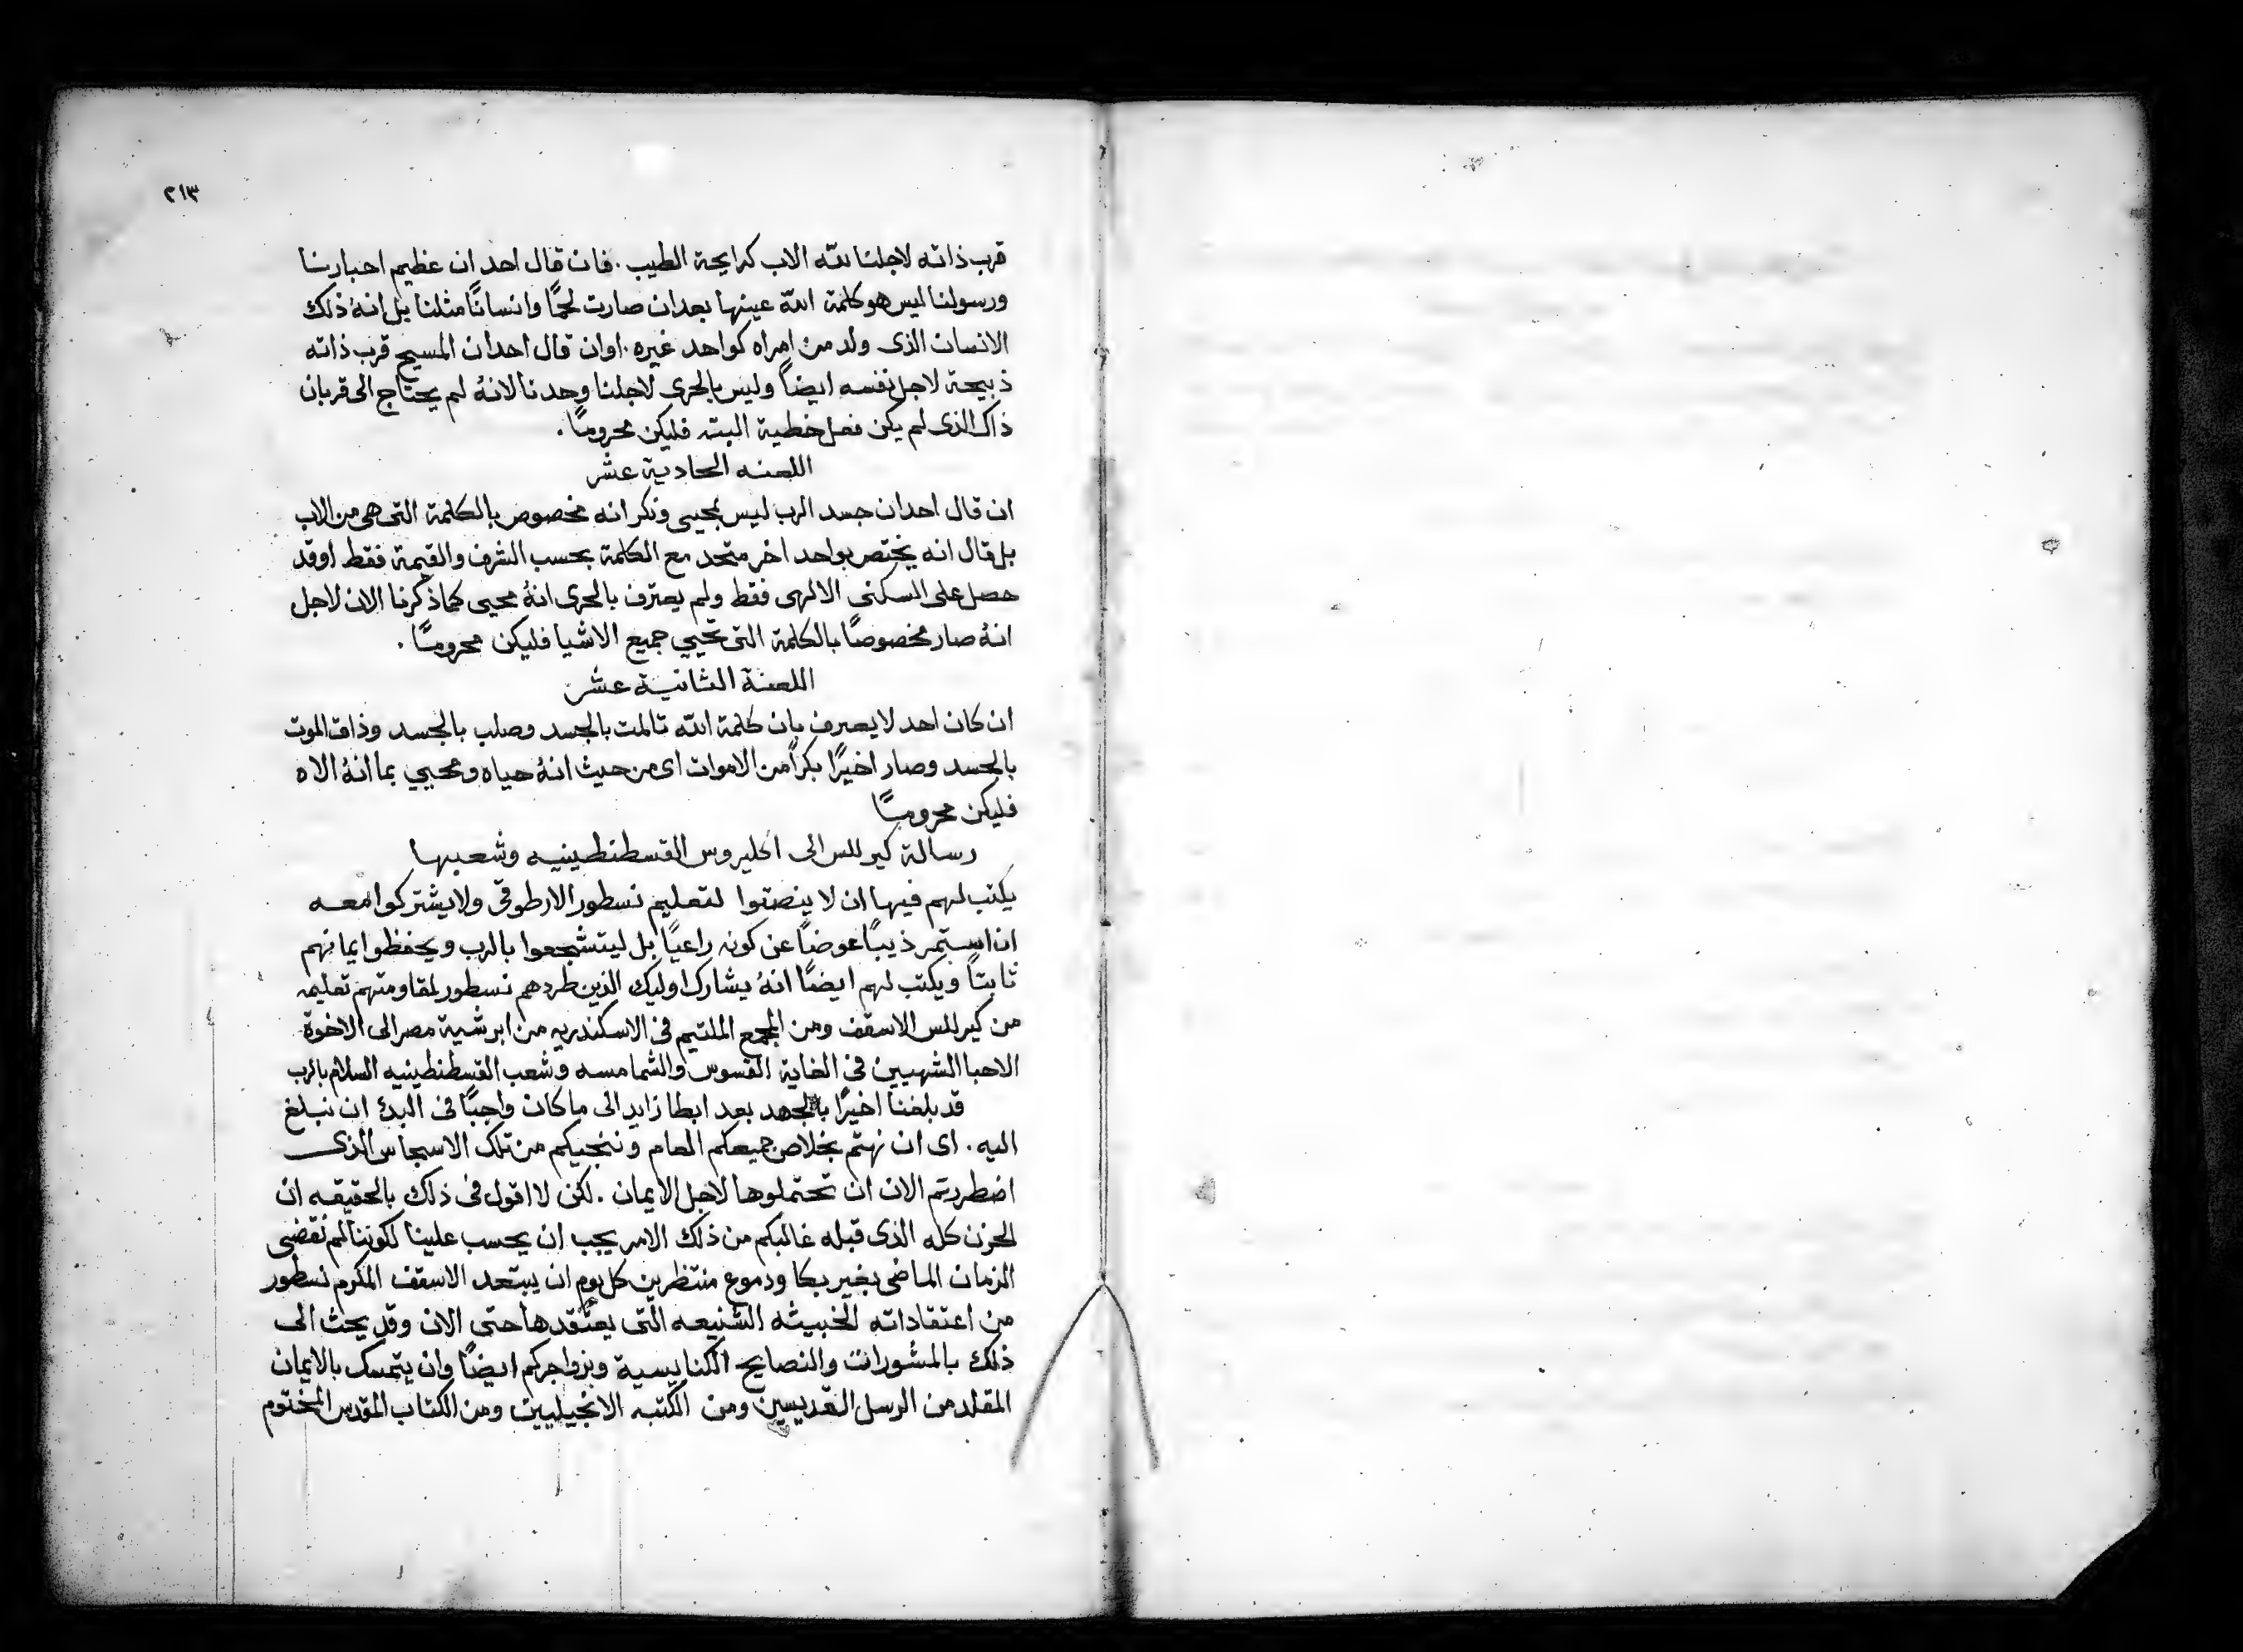 ٢١٣
قرب ذاته لاجلنا لله الاب كرايحة الطيب. فان قال احد ان عظيم احبارنا
ورسولنا ليس هو كلمة الله عينها بعد ان صارت لحمًا وانسانًا مثلنا بل انهُ ذلك
الانسان الذى ولد من امراه كواحد غيره. اوان قال احد ان المسيح قرب ذاته
ذبيحة لاجل نفسه ايضاً وليس بالحرى لاجلنا وحدنا لانهُ لم يحتاج الى قربان
ذاك الذى لم يكن فعل خطية البته فليكن محرومًا.
اللعنه الحادية عشر
ان قال احد ان جسد الرب ليس بمحيى ونكر انه مخصوص بالكلمة التى هى من الاب
بل قال انه يختص بواحد اخر متحد مع الكلمة بحسب الشرف والقيمة فقط اوقد
حصل على السكنى الالهى فقط ولم يعترف بالحرى انهُ محيى كما ذكرنا الان لاجل
انهُ صار مخصوصًا بالكلمة التى تحيي جميع الاشيا فليكن محرومًا.
اللعنة الثانية عشر
ان كان احد لا يعترف بان كلمة الله تالمت بالجسد وصلب بالجسد وذاق الموت
بالجسد وصار اخيرًا بكراً من الاموات اى من حيث انهُ حياه ومحيي بما انهُ الاه
فليكن محرومًا
رسالة كيرللس الى اكليروس القسطنطينيه وشعبها
يكتب لهم فيها ان لا ينصتوا لتعليم نسطور الارطوقى ولا يشتركوا معه
ان استمر ذيبًا عوضًا عن كونه راعيًا بل ليتشجعوا بالرب ويحفظوا ايمانهم
ثابتاً ويكتب لهم ايضًا انهُ يشارك اوليك الذين طردهم نسطور لمقاومتهم تعليمه
من كيرللس الاسقف ومن المجمع الملتيم فى الاسكندريه من ابرشية مصر الى الاخوة
الاحبا الشهيين فى الغاية القسوس والشمامسه وشعب القسطنطينيه السلام بالرب
قد بلغنا اخيرًا بالجهد بعد ابطا زايد الى ما كان واجبًا فى البدئ ان نبلغ
اليه. اى ان نهتم بخلاص جميعكم العام وننجيكم من تلك الاسجاس الذى
اضطررتم الان ان تحتملوها لاجل الايمان. لكن لا اقول فى ذلك بالحقيقه ان
الحزن كله الذى قبله غالبكم من ذلك الامر يجب ان يحسب علينا لكوننا لم نقضى
الزمان الماضى بغير بكا ودموع منتظرين كل يوم ان يبتعد الاسقف المكرم نسطور
من اعتقاداته الخبيثه الشنيعه التى يعتقدها حتى الان وقد يحث الى
ذلك بالمشورات والنصايح الكنايسية وبزواجركم ايضًا وان يتمسك بالايمان
المقلد من الرسل القديسين ومن الكتبه الانجيليين ومن الكتاب المقدس المختوم